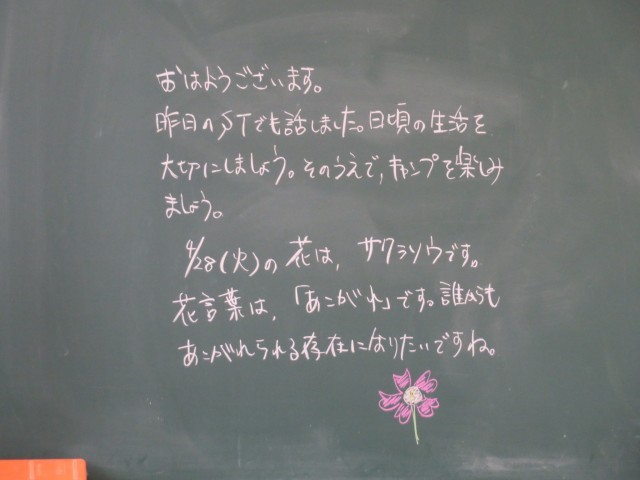 おはようございます。
昨日のSTでも話しました。日頃の生活を
大切にしましょう。そのうえで、キャンプを楽しみ
ましょう。
4/28(火)の花は、サクラソウです。
花言葉は、「あこがれ」です。誰からも
あこがれられる存在になりたいですね。